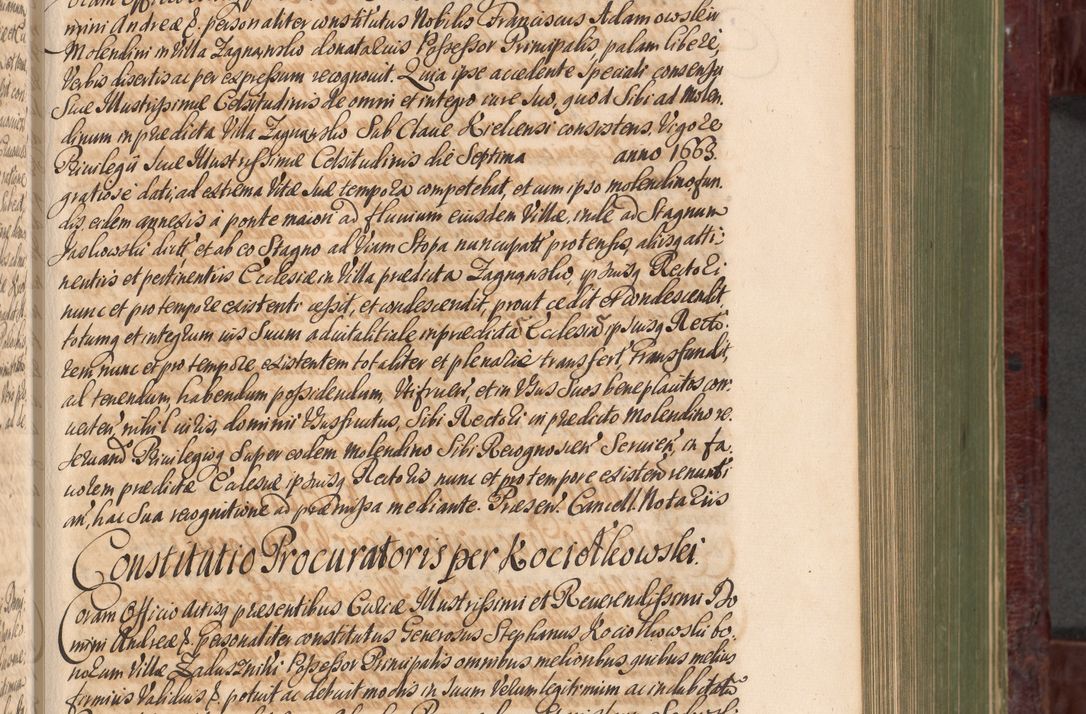 mini Andreæ &. personaliter constitutus Nobilis Franciscus Adamowski
Molendini in Villa Zagnansko donatalius Possessor Principalis, palam libere,
Verbis disertis ac per expressum recognouit. Quia ipse accedente speciali consensu
Suæ Illustrissimæ Celsitudinis de omni et integro iure suo, quod Sibi ad Molen.
dinum in prædicta Villa Zagnansko Sub Claue Kielcensi consistens, Vigore
Priuilegij Suæ Illustrissimæ Celsitudinis die Septima anno 1663.
gratiose dati, ad extrema Vitæ suæ tempora competebat, et cum ipso molendino fun.
dis, eidem annexis à ponte maiori ad fluuium eiusdem Villæ, inde ad Stagnum
dict et ab eo Stagno ad Viam Stopa nuncupatt protensis, alijsq atti:
nentiis et pertinentiis Ecclesiæ in Villa prædicta Zagnansko, ipsiusq Rectori
nunc et pro tempore existenti cessit, et condescendit, prout cedit et condescendit
totumq et integrum ius Suum aduitalitiale in prædictã Ecclesiã ipsiusq Recto:
rem nunc et pro tempore existentem totaliter et plenarie transfert transfundit,
ad tenendum habendum possidendum, Utifruen, et in Usus Suos beneplacitos con
uerten, nihil iuris, dominii Ususfructus, Sibi Rectori in prædicto Molendino re.
seruand. Priuilegioq Super eodem molendino Sibi Recogno Seruien, in fa
uorem prædictæ Ecclesiæ ipsiusq Rectoris nunc et pro tempore existen renunti
an, hac Sua recognitione ad præmissa mediante. Præsen. Cancell. Notariis
Constitutio Procuratoris per Kociołkowski.
Coram Officio Actisq præsentibus Curiæ Illustrissimi et Reuerendissimi Do
mini Andreæ &. personaliter constitutus Generosus Stephanus Kociołkowski bo.
norum Villæ Zaduszniki Possessor Principalis omnibus melioribus quibus melius
firmius Validius &. potuit ac debuit modis in suum Verum legitimum ac indubitatũ